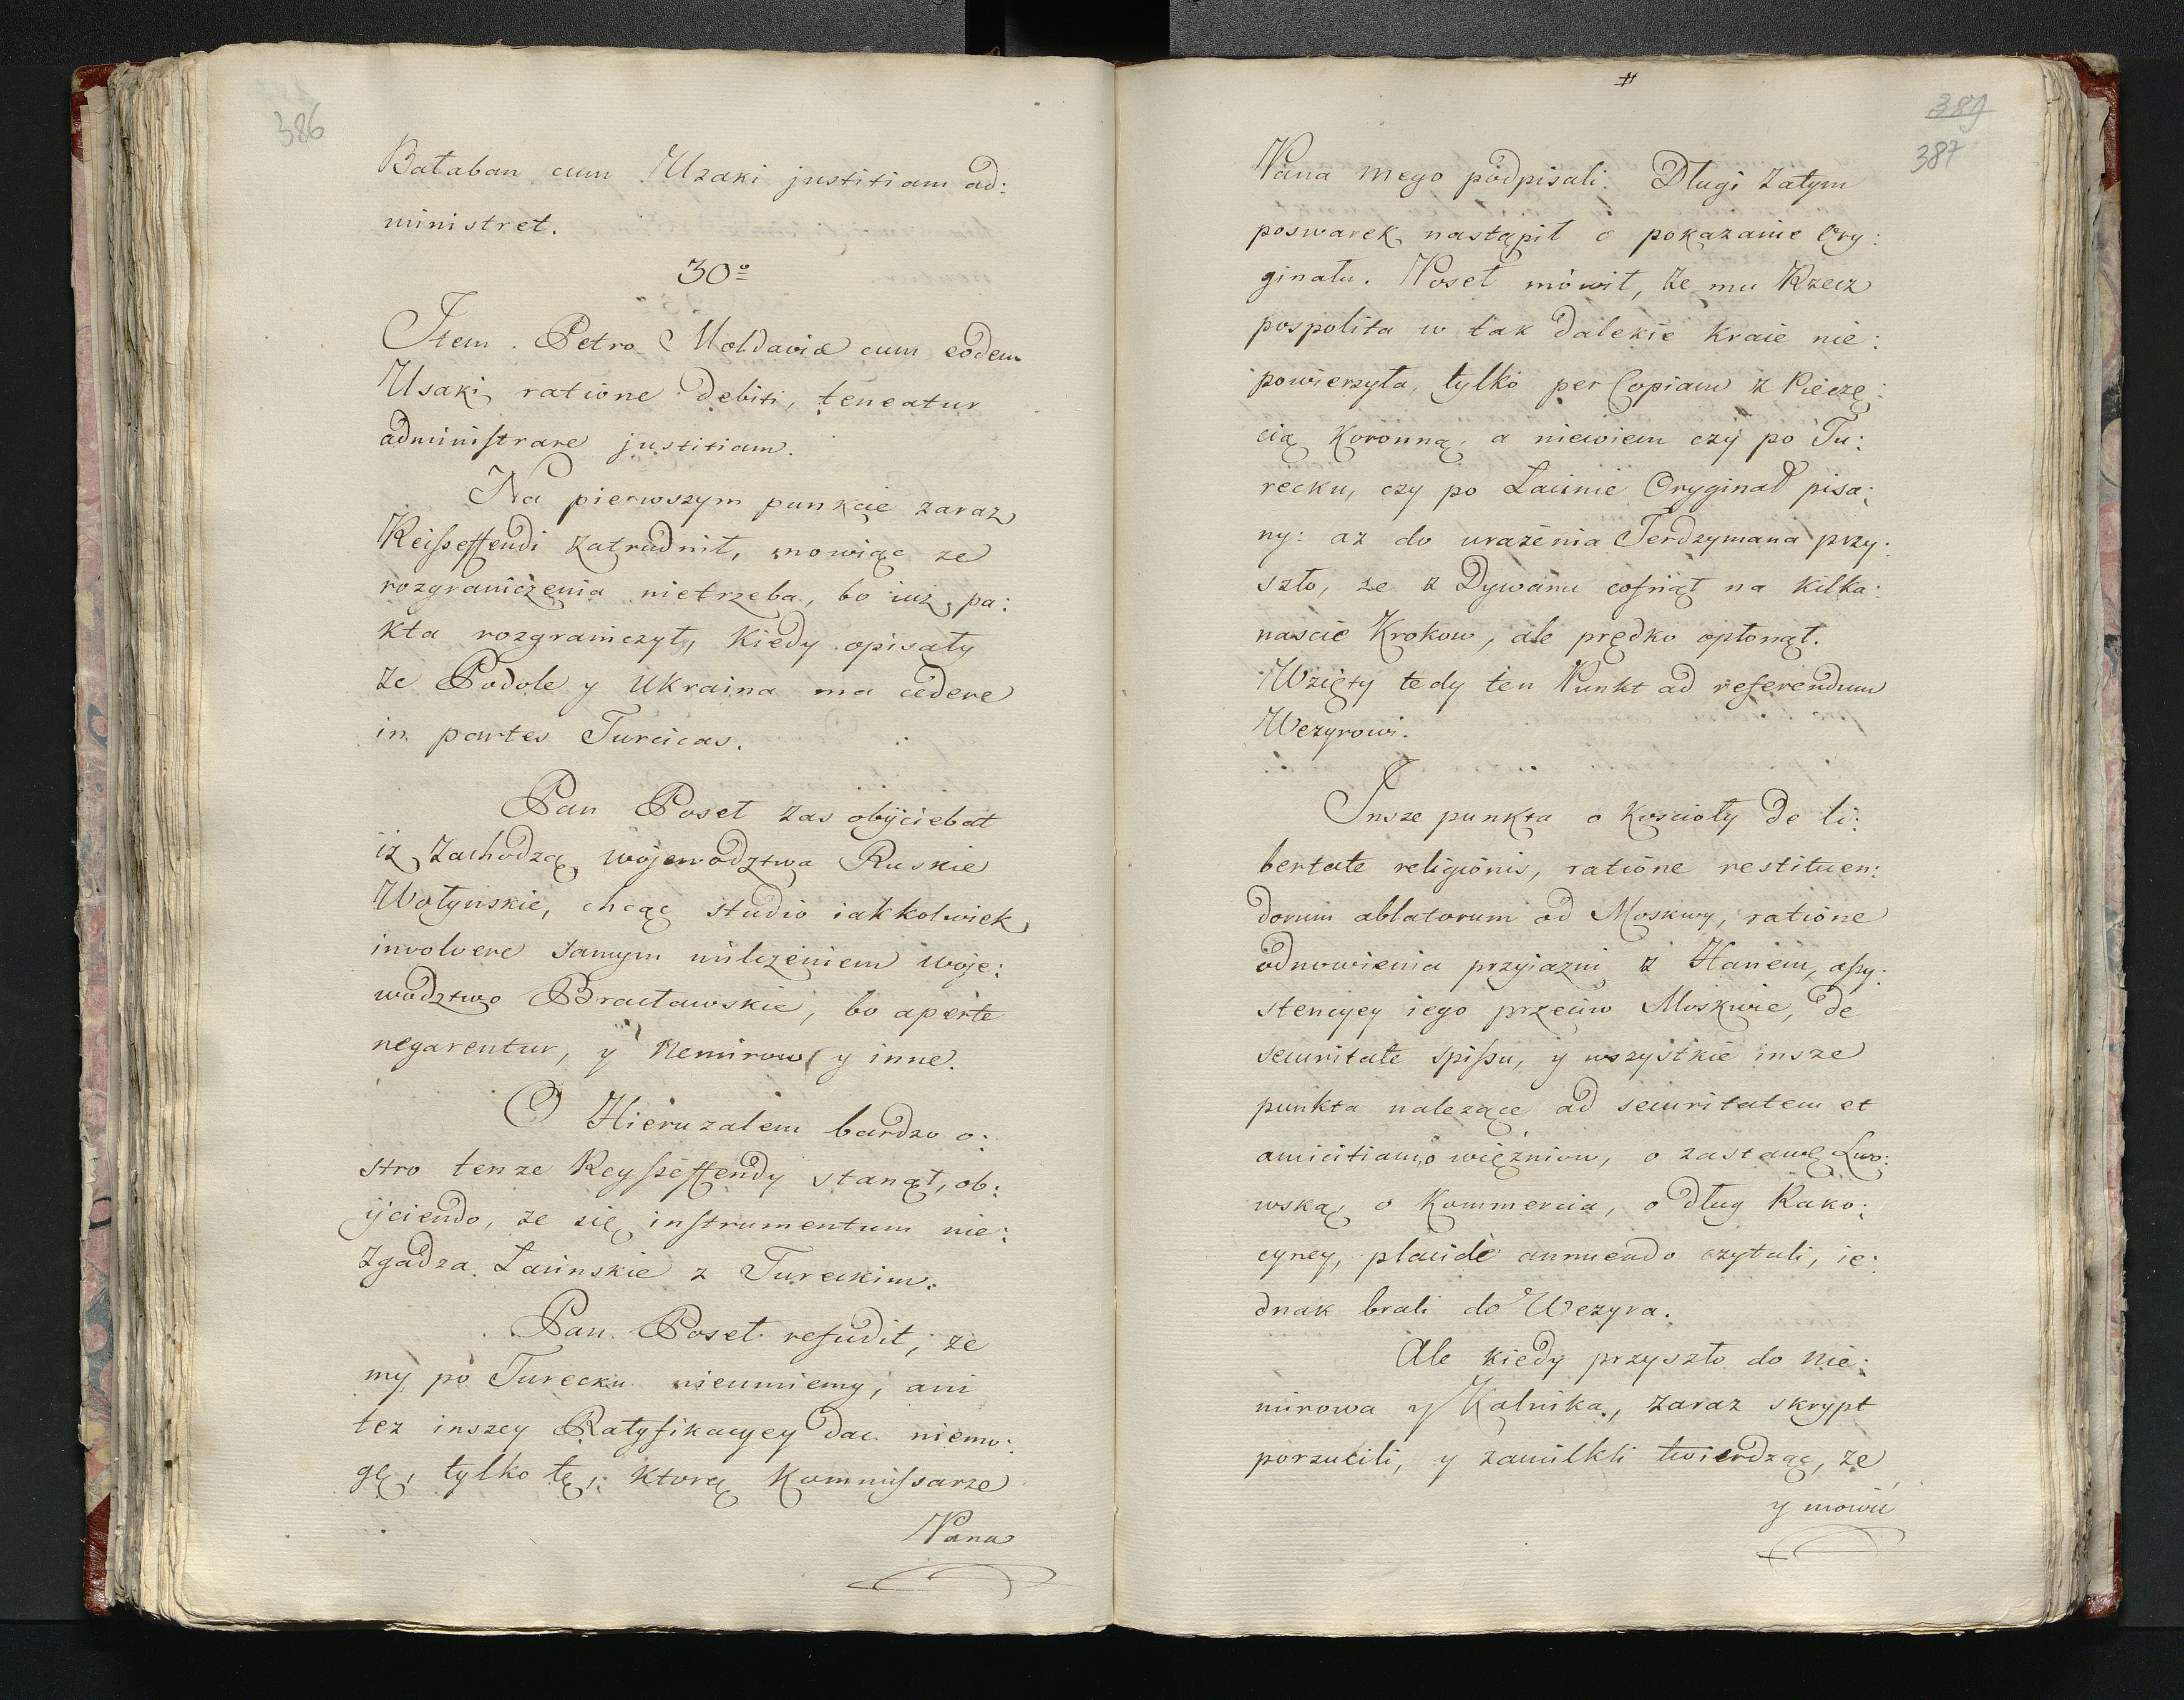 386
Bałaban cum Uzaki justitiam ad:
ministret.
30º
Item Petro Moldaviæ cum eodem
Usaki ratione debiti, teneatur
administrare justitiam.
Na pierwszym punkcie zaraz
Reisseffendi zatrudnił, mowiąc ze
rozgraniczenia nietrzeba, bo iuz pa:
kta rozgraniczyły, kiedy opisały
ze Podole y Ukraina ma cedere
in partes Turcicas.
Pan Poseł zas obÿciebat
iz zachodzą wojewodztwa Ruskie
Wołynskie, chcąc studio iakkolwiek
involvere samym milczeniem woje:
wodztwo Bracławskie, bo aperte
negarentur, y Nemirow y inne.
O Hieruzalem bardzo o:
stro tenze Reysseffendy stanął, ob:
ijciendo, ze się instrumentum nie:
zgadza Łacinskie z Tureckim.
Pan Poseł refudit, ze
my po Turecku nieumiemy, ani
tez inszey Ratyfikacyey dac niemo:
gę, tylko tę, ktorą Kommissarze
Pana
#
389
387
Pana mego podpisali. Długi zatym
poswarek nastąpił o pokazanie Ory:
ginału. Poseł mówił, ze mu Rzecz
pospolita w tak dalekie kraie nie:
powierzyła, tylko per Copiam z Pieczę:
cią Koronną, a niewiem czy po Tu:
recku, czy po Łacinie Oryginał pisa:
ny: az do urażenia Terdzymana przy:
szło, ze z Dywanu cofnął na kilka:
nascie Krokow, ale prędko opłonął.
Wzięty tedy ten Punkt ad referendum
Wezyrowi.
Insze punkta o Kościoły de li:
bertate religionis, ratione restituen:
dorum ablatorum od Moskwy, ratione
odnowienia przyiazni z Hanem, assy:
stencyey iego przeciw Moskwie, de
securitate Spissu, y wszystkie insze
punkta nalezące ad securitatem et
amicitiam, o więzniow, o zastawę Lwo:
wską, o Kommercia, o dług Rako:
cyney, placide annuendo czytali, ie:
dnak brali do Wezyra.
Ale kiedy przyszło do Nie:
mirowa y Kalnika, zaraz skrypt
porzucili, y zamilkli twierdząc, ze
y mowić